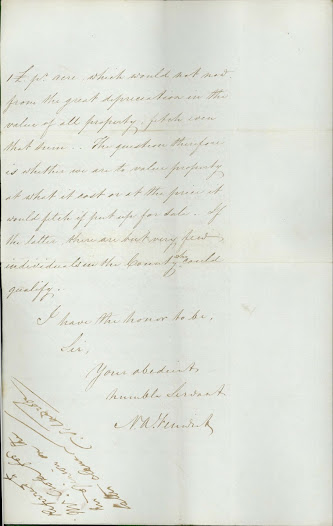 1 £ pr. acre which would not now
from the great depreciation in the
value of all property, fetch even
that sum. The question therefore
is whether we are to value property
at what it cost or at the price it
would fetch if put up for sale. If
the latter there are but very few
individuals in the County who could
qualify.
I have the honor to be,
Sir,
Your obedient
humble Servant
N A Fenwick